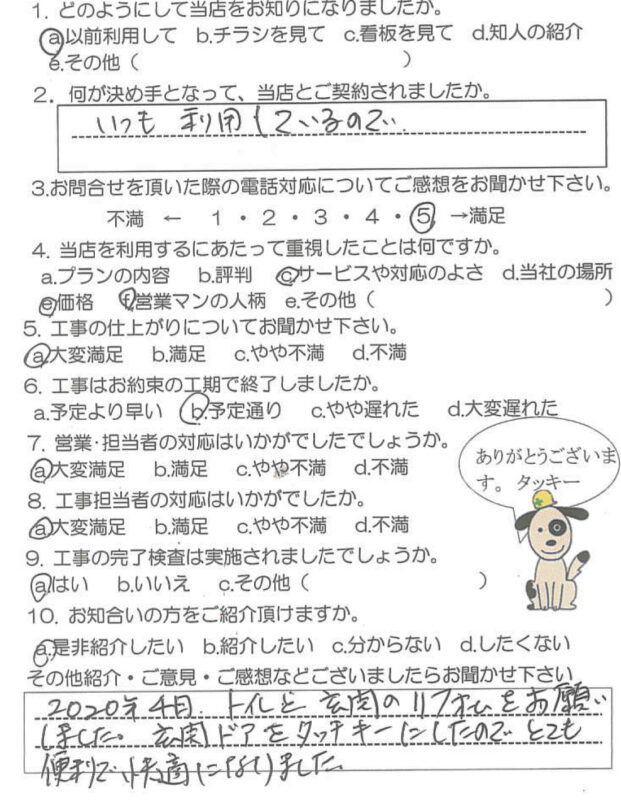 1. どのようにして当店をお知りになりましたか。
a.以前利用して b.チラシを見て c.看板を見て d.知人の紹介
e.その他（ ）
2. 何が決め手となって、当店とご契約されましたか。
いつも 利用しているので
3.お問合せを頂いた際の電話対応についてご感想をお聞かせ下さい。
不満 ← 1・2・3・4・5 →満足
4. 当店を利用するにあたって重視したことは何ですか。
a.プランの内容 b.評判 c.サービスや対応のよさ d.当社の場所
e.価格 f.営業マンの人柄 e.その他（ ）
5. 工事の仕上がりについてお聞かせ下さい。
a.大変満足 b.満足 c.やや不満 d.不満
6. 工事はお約束の工期で終了しましたか。
a.予定より早い b.予定通り c.やや遅れた d.大変遅れた
7. 営業・担当者の対応はいかがでしたでしょうか。
a.大変満足 b.満足 c.やや不満 d.不満
ありがとうございま
す。 タッキー
8. 工事担当者の対応はいかがでしたか。
a.大変満足 b.満足 c.やや不満 d.不満
9. 工事の完了検査は実施されましたでしょうか。
a.はい b.いいえ c.その他（ ）
10. お知合いの方をご紹介頂けますか。
a.是非紹介したい b.紹介したい c.分からない d.したくない
その他紹介・ご意見・ご感想などございましたらお聞かせ下さい
2020年4月. トイレと 玄関のリフォームをお願い
しました。玄関ドアをタッチキーにしたので とても
便利で 快適になりました